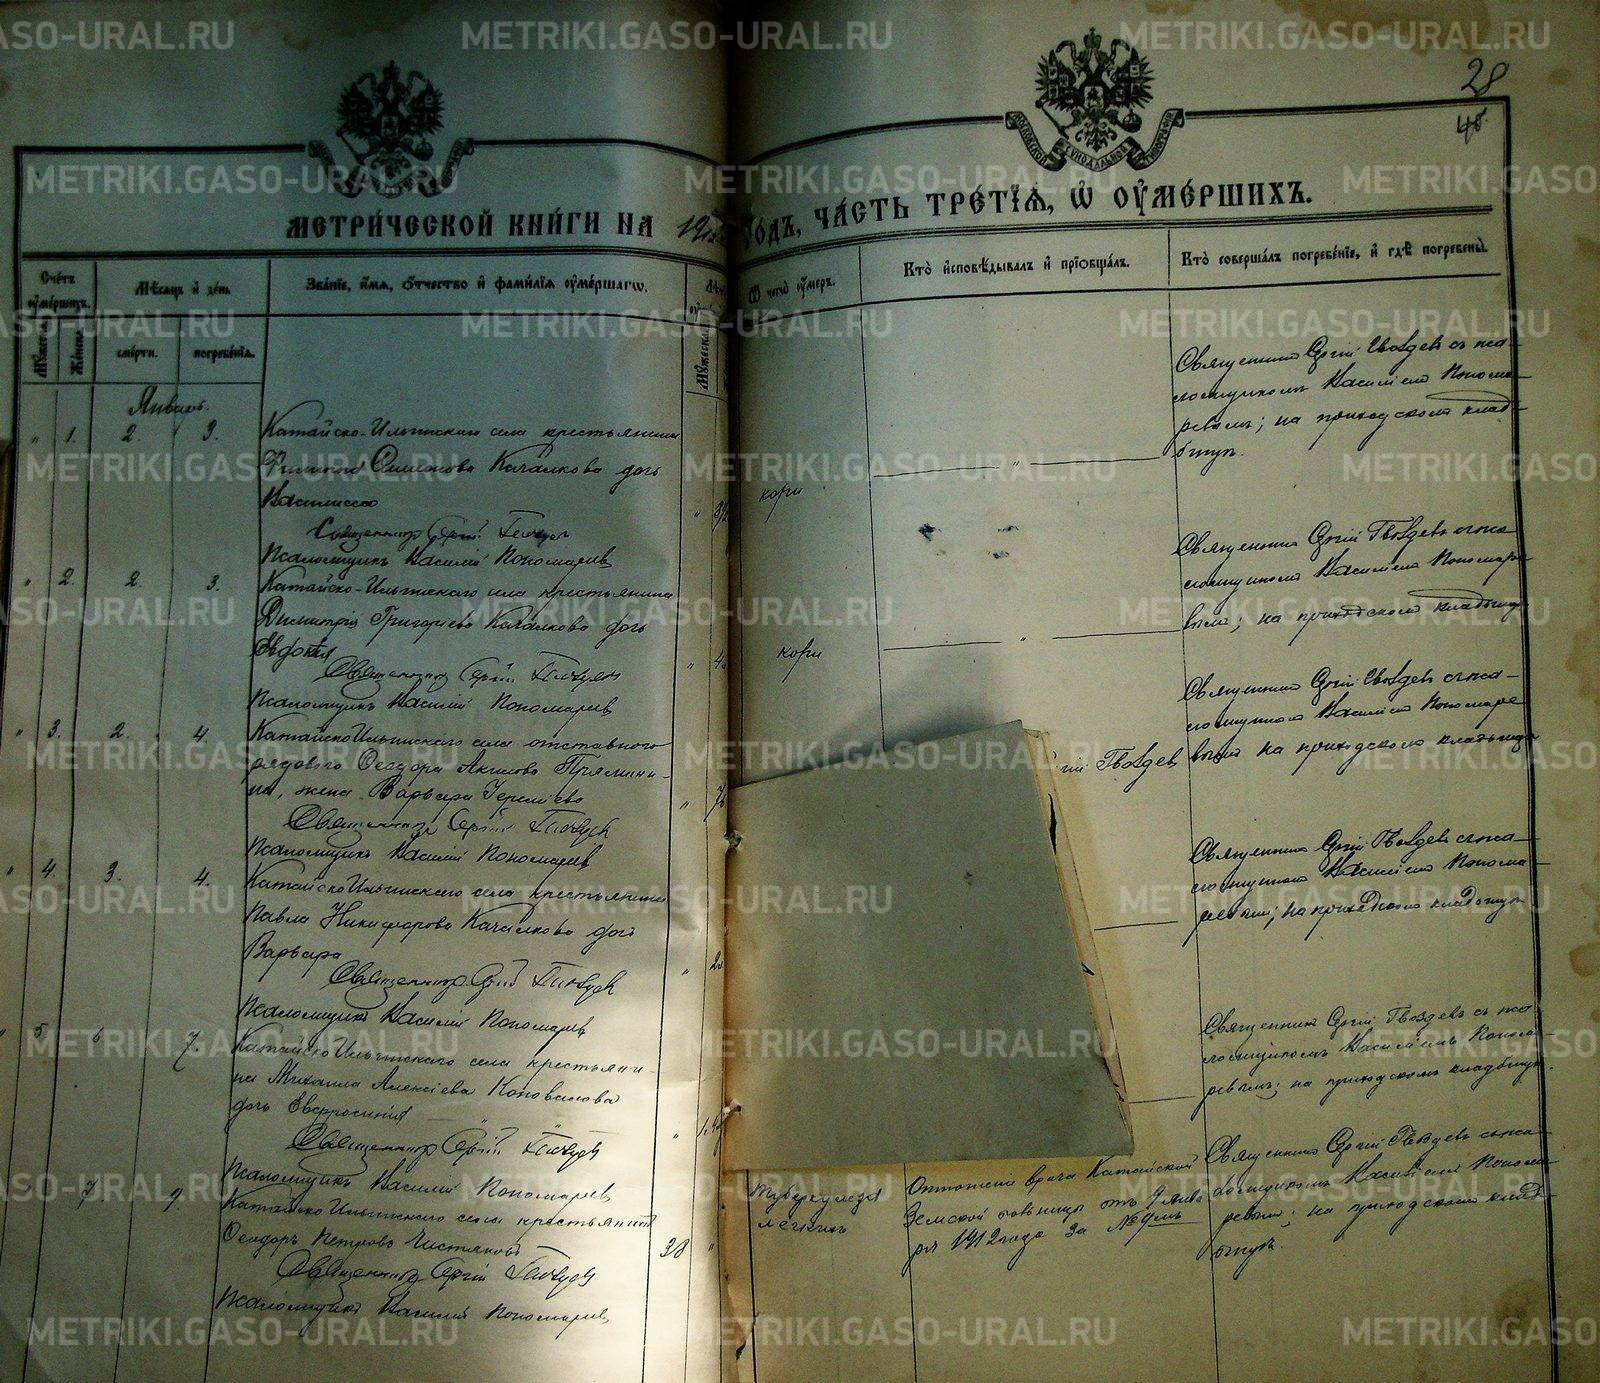 28
МЕТРИ́ЧЕСКОЙ КНИ́ГИ НА 1912 ГОДЪ, ЧА́СТЬ ТРЕ́ТІѦ, Ѡ҆ ОУ҆МЕ́РШИХЪ.
Сче́тъ оу҆ме́ршихъ.
Мꙋжеска
Же́нска
Мѣ́сѧцъ и҆ де́нь
сме́рти.
погребе́нїѧ.
Зва́нїе, и҆́мѧ, ѻ҆́тчество и҆ фамилїѧ оу҆ме́ршагѡ.
Лѣ́
Мꙋжеска
Ѿ чегѡ̀ оу҆́меръ.
Кто̀ и҆сповѣ́дывалъ и҆ прїѡбща́лъ.
Кто̀ соверша́лъ погребе́нїе, и҆ гдѣ̀ погребены̀.
Январь.
" 1. 2. 3. Катайско-Ильинскаго села крестьянина
Симонова Качалкова дочь
Василисса
Священникъ Сергій Гвоздев
Псаломщикъ Василій Пономарев
кори
Священникъ Сергій Гвоздевъ съ пса-
ломщикомъ Василіемъ Понома-
ревымъ; на приходскомъ клад-
бищѣ.
" 2. 2. 3. Катайско-Ильинскаго села крестьянина
Димитрія Григоріева Качалкова дочь
Евдокія
" 4
Священникъ Сергій Гвоздев
Псаломщикъ Василій Пономарев
кори
Священникъ Сергій Гвоздевъ съ пса
ломщикомъ Василіемъ Пономаре
вымъ; на приходскомъ кладбищѣ
" 3. 2. 4. Катайско Ильинскаго села отставного
рядового Ѳеодора Акилова Прямини-
на, жена Варвара Іереміева
Священникъ Сергій Гвоздев
Псаломщикъ Василій Пономарев
гій Гвоздев
Священникъ Сергій Гвоздевъ съ пса-
ломщикомъ Василіемъ Пономаре
вымъ на приходскомъ кладбищѣ
" 4. 3. 4. Катайско Ильинскаго села крестьянина
Павла Никифорова Качалкова дочь
Варвара
Священникъ Сергій Гвоздев
Псаломщикъ Василій Пономарев
Священникъ Сергій Гвоздевъ съ пса-
ломщикомъ Василіемъ Понома-
ревымъ; на приходскомъ кладбищѣ
" 5 6 7 Катайско Ильинскаго села крестьяни-
на Михаила Алексіева Коновалова
дочь Евфросинія
Священникъ Сергій Гвоздев
Псаломщикъ Василій Пономарев
Священникъ Сергій Гвоздевъ съ пса-
ломщикомъ Василіемъ Понома-
ревымъ; на приходскомъ кладбищѣ.
7. 9. Катайско Ильинскаго села крестьянинъ
Ѳеодоръ Петровъ Чистяковъ
38 "
Священникъ Сергій Гвоздев
Псаломщикъ Василій Пономарев
туберкулеза
легкихъ
Отношеніе врача Катайской
Земской больницы отъ 9 янва
ря 1912 года за №
Священникъ Сергій Гвоздевъ съ пса
ломщикомъ Василіемъ Понома
ревымъ; на приходскомъ клад-
бищѣ.
METRIKI.GASO-URAL.RU